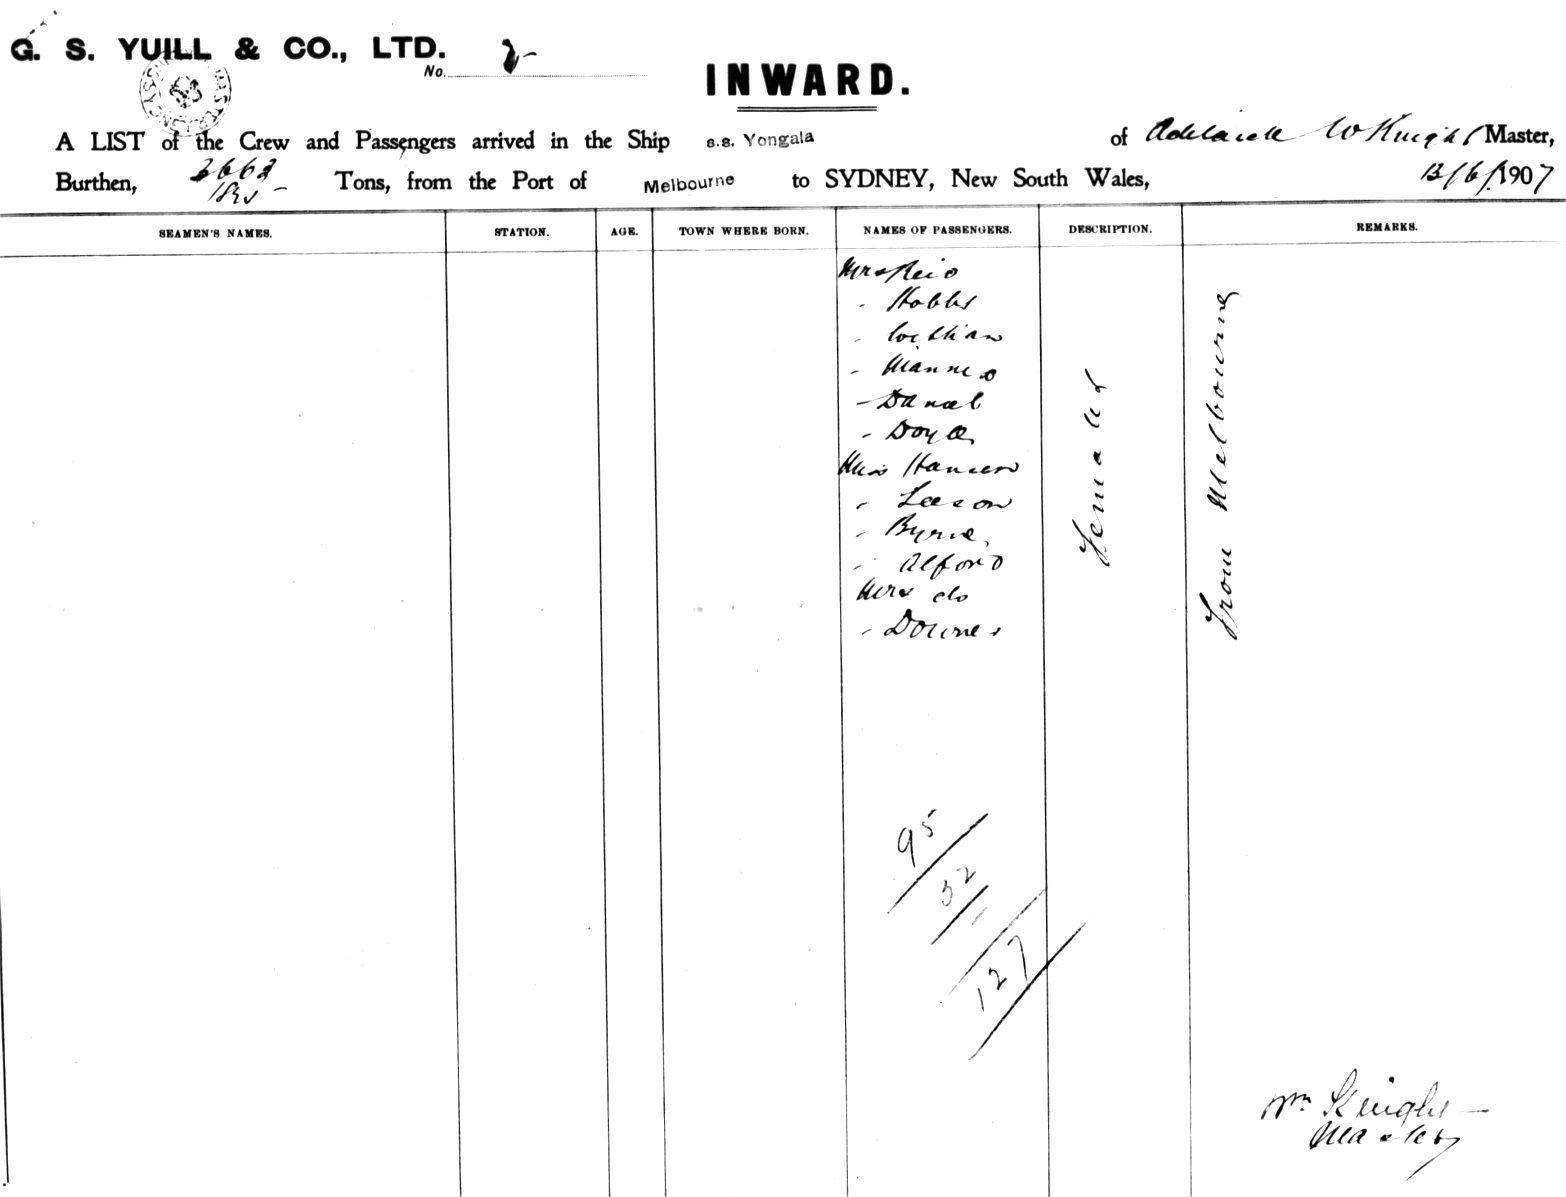 G. S. YUILL & CO., LTD.
No. 2
INWARD.
A LIST of the Crew and Passengers arrived in the Ship s.s. Yongala of Adelaide W Knight Master,
Burthen, Tons, from the Port of Melbourne to SYDNEY, New South Wales, 13/6/1907
SEAMEN'S NAMES. STATION. AGE. TOWN WHERE BORN. NAMES OF PASSENGERS. DESCRIPTION. REMARKS.
Mrs Reid
" Hobbs
"
" Manned
" Daniel
" Doyle
Miss Hansen
" Leeson
" Byrne
" Alford
Mrs do
" Downes
Females
From Melbourne
95
32
127
Wm Knight
Master